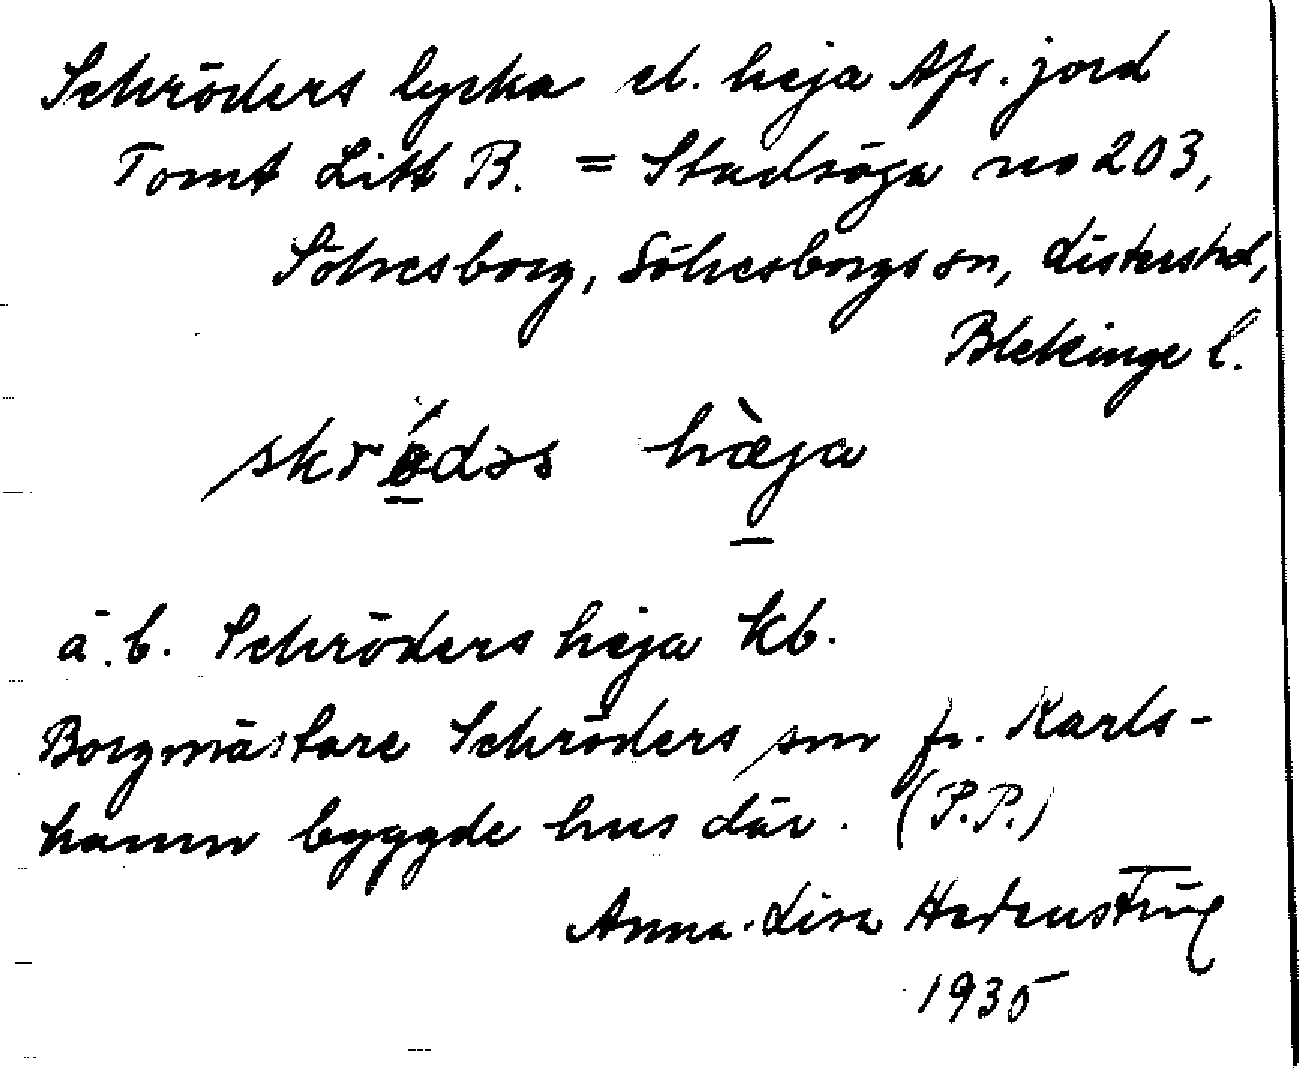 Schröders lycka el. heja Afs. jord
Tomt Litt B. = Stadsäga no 203,
Sölvesborg, Sölvesborgs sn, Listers hd,
Blekinge l.
skrǿdəs hæ̀ja
ä. b. Schröders heja kb.
Borgmästare Schröders son fr. Karls-
hamn byggde hus där. (P.P.)
Anna-Lisa Hedenstrüg
1935